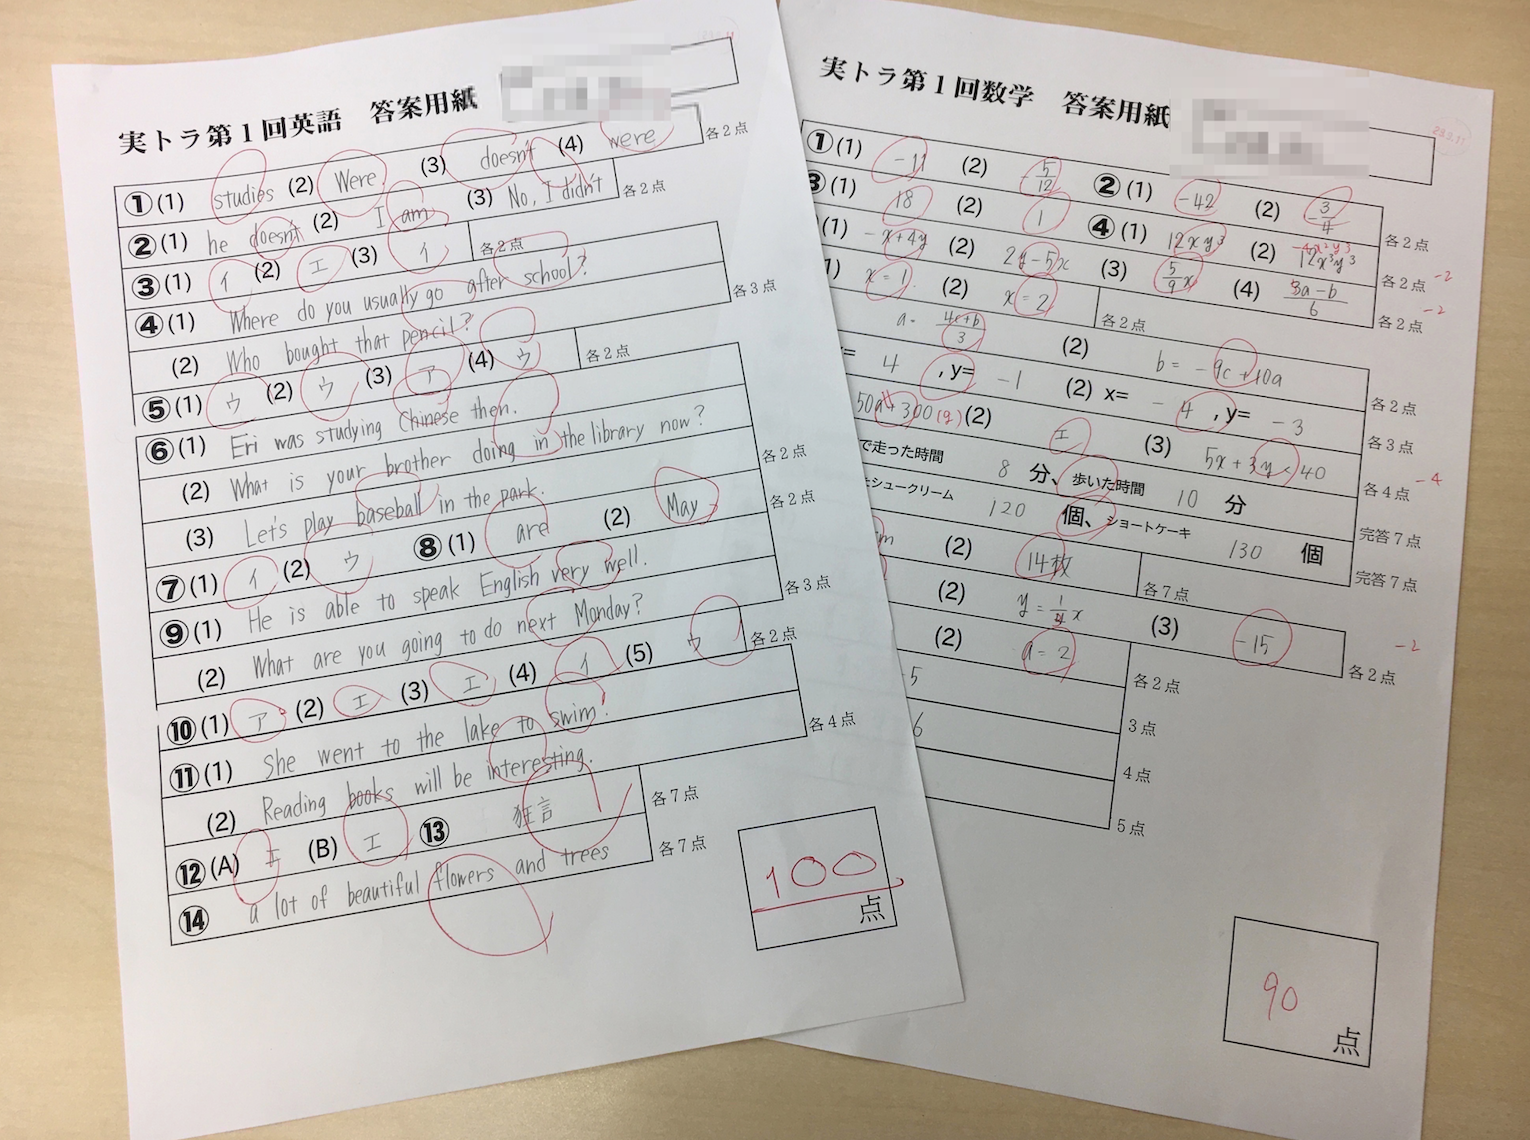 実トラ第1回英語 答案用紙
①(1) studies (2) Were (3) doesn't (4) were 各2点
②(1) he doesn't (2) I am (3) No, I didn't 各2点
③(1) イ (2) エ (3) イ 各2点
④(1) Where do you usually go after school?
(2) Who bought that pencil? 各3点
⑤(1) ウ (2) ウ (3) ア (4) ウ 各2点
⑥(1) Eri was studying Chinese then.
(2) What is your brother doing in the library now?
(3) Let's play baseball in the park. 各2点
⑦(1) イ (2) ウ ⑧(1) are (2) May 各2点
⑨(1) He is able to speak English very well.
(2) What are you going to do next Monday? 各3点
⑩(1) ア (2) エ (3) エ (4) イ (5) ウ 各2点
⑪(1) She went to the lake to swim.
(2) Reading books will be interesting. 各4点
⑫(A) エ (B) エ ⑬ 狂言 各7点
⑭ a lot of beautiful flowers and trees 各7点
100
点
実トラ第1回数学 答案用紙
①(1) -11 (2) -5/12 ②(1) -42 (2) -3/4 各2点
(1) 18 (2) 1 ④(1) 12xy³ (2) 12x³y³ 各2点 -2
(1) -x+4y (2) 2y-5x (3) 5/9x (4) 3a-b/6 各2点 -2
x=1 (2) x=2 各2点
a= 4c+b/3 (2) b=-9c+10a 各2点
4 ,y= -1 (2) x= -4 ,y= -3 各3点
50a+300(g) (2) エ (3) 5x+3y<40 各4点 -4
で走った時間 8 分、歩いた時間 10 分 完答7点
シュークリーム 120 個、ショートケーキ 130 個 完答7点
m (2) 14枚 各7点
(2) y=1/4x (3) -15 各2点 -2
(2) a=2 各2点
5 3点
6 4点
5点
90
点